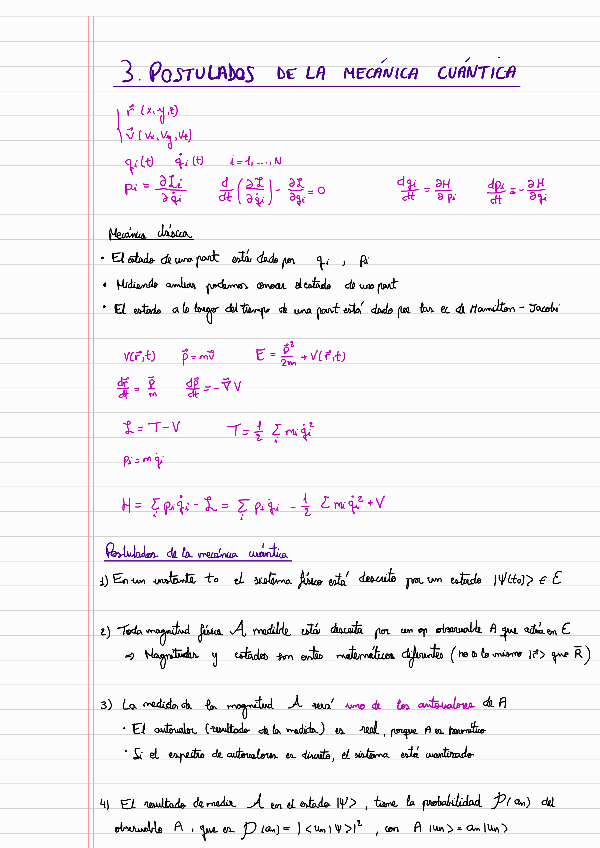 3. POSTULADOS DE LA MECÁNICA CUÁNTICA
{ r⃗ (x, y, z)
v⃗ (Vx, Vy, Vz)
qi(t) q̇i(t) i=1,...,N
pi = ∂Li/∂q̇i d/dt (∂L/∂q̇i) - ∂L/∂qi = 0 dqi/dt = ∂H/∂pi dpi/dt = -∂H/∂qi
Mecánica clásica
· El estado de una part está dado por qi , pi
· Midiendo ambas podemos conocer el estado de una part
· El estado a lo largo del tiempo de una part está dado por las ec de Hamilton-Jacobi
V(r⃗,t) p⃗=mv⃗ E = p⃗²/2m + V(r⃗,t)
dr⃗/dt = p⃗/m dp⃗/dt = -∇⃗V
L = T-V T = 1/2 Σi mi q̇i²
pi = m q̇i
H = Σi pi q̇i - L = Σi pi q̇i - 1/2 Σ mi q̇i² + V
Postulados de la mecánica cuántica
1) En un instante to el sistema físico está descrito por un estado |Ψ(to)> ∈ E
2) Toda magnitud física A medible está descrita por un op observable A que actúa en E
⇒ Magnitudes y estados son entes matemáticos diferentes (no es lo mismo |r⃗> que R̄)
3) La medida de la magnitud A será uno de los autovalores de A
· El autovalor (resultado de la medida) es real, porque A es hermítico
· Si el espectro de autovalores es discreto, el sistema está cuantizado
4) El resultado de medir A en el estado |Ψ>, tiene la probabilidad P(an) del
observable A, que es P(an) = |<un|Ψ>|², con A|un> = an|un>